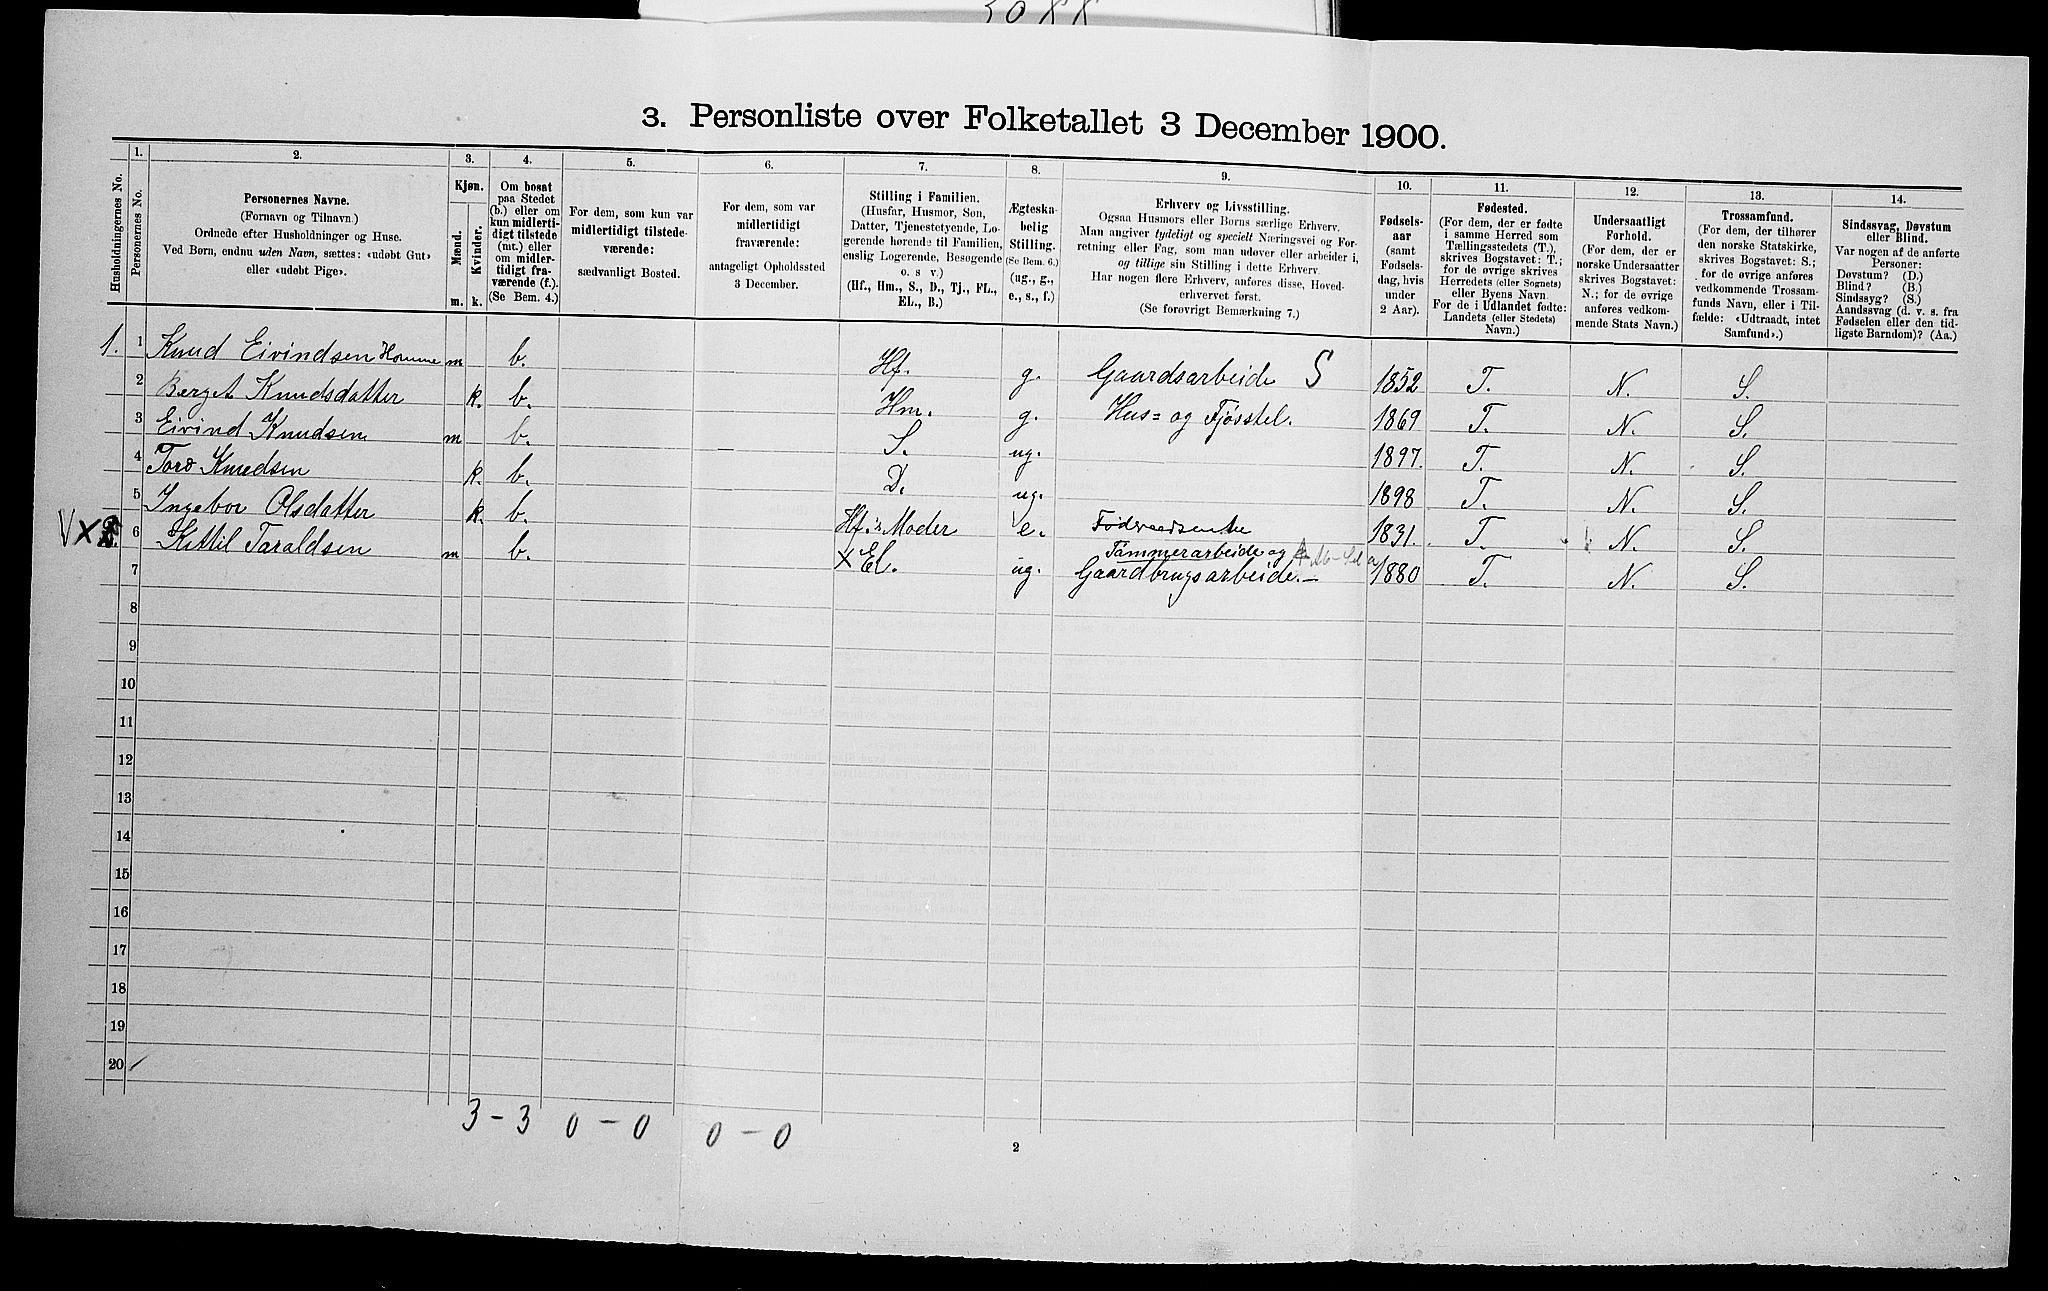 3. Personliste over Folketallet 3 December 1900.
Husholdningernes No.
1. Personernes No.
2.
Personernes Navne.
(Fornavn og Tilnavn.)
Ordnede efter Husholdninger og Huse.
Ved Børn, endnu uden Navn, sættes: «udøbt Gut»
eller «udøbt Pige».
3.
Kjøn.
Mænd. Kvinder.
m. k.
4.
Om bosat
paa Stedet
(b.) eller om
kun midlerti-
digt tilstede
(mt.) eller
om midler-
tidigt fra-
værende (f.).
(Se Bem. 4.)
5.
For dem, som kun var
midlertidigt tilstede-
værende:
sædvanligt Bosted.
6.
For dem, som var
midlertidigt
fraværende:
antageligt Opholdssted
3 December.
7.
Stilling i Familien.
(Husfar, Husmor, Søn,
Datter, Tjenestetyende, Lo-
gerende hørende til Familien,
enslig Logerende, Besøgende
o. s v.)
(Hf., Hm., S., D., Tj., FL.,
EL., B.)
8.
Ægteska-
belig
Stilling.
(Se Bem. 6.)
(ug., g.,
e., s., f.)
9.
Erhverv og Livsstilling.
Ogsaa Husmors eller Børns særlige Erhverv.
Man angiver tydeligt og specielt Næringsvei og For-
retning eller Fag, som man udøver eller arbeider i,
og tillige sin Stilling i dette Erhverv.
Har nogen flere Erhverv, anføres disse, Hoved-
erhvervet først.
(Se forøvrigt Bemærkning 7.)
10.
Fødsels-
aar
(samt
Fødsels-
dag, hvis
under
2 Aar).
11.
Fødested.
(For dem, der er fødte
i samme Herred som
Tællingsstedets (T.),
skrives Bogstavet: T.;
for de øvrige skrives
Herredets (eller Sognets)
eller Byens Navn.
For de i Udlandet fødte:
Landets (eller Stedets)
Navn.)
12.
Undersaatligt
Forhold.
(For dem, der er
norske Undersaatter
skrives Bogstavet:
N.; for de øvrige
anføres vedkom-
mende Stats Navn.)
13.
Trossamfund.
(For dem, der tilhører
den norske Statskirke,
skrives Bogstavet: S.;
for de øvrige anføres
vedkommende Trossam-
funds Navn, eller i Til-
fælde: «Udtraadt, intet
Samfund».)
14.
Sindssvag, Døvstum
eller Blind.
Var nogen af de anførte
Personer:
Døvstum? (D.)
Blind? (B.)
Sindssyg? (S.)
Aandssvag (d. v. s. fra
Fødselen eller den tid-
ligste Barndom)? (Aa.)
1. 1 Knud Eivindsen Homme m b. Hf. g. Gaardsarbeide S 1852 T. N. S.
2 Berget Knudsdatter k. b. Hm. g. Hus= og Fjøsstel. 1869 T. N. S.
3 Eivind Knudsen m b. S. ug. 1897. T. N. S.
4 Toro Knudsen k. b. D. ug. 1898 T. N. S.
5 Ingebor Olsdatter k. b. Hf.'s Moder e. Føderaadsenke 1831. T. N. S.
6 Kittil Taraldsen m b. X El. ug. Tømmerarbeide og
Gaardbrugsarbeide. 1880 T. N. S.
7
8
9
10
11
12
13
14
15
16
17
18
19
20
3 - 3 0 - 0 0 - 0
2